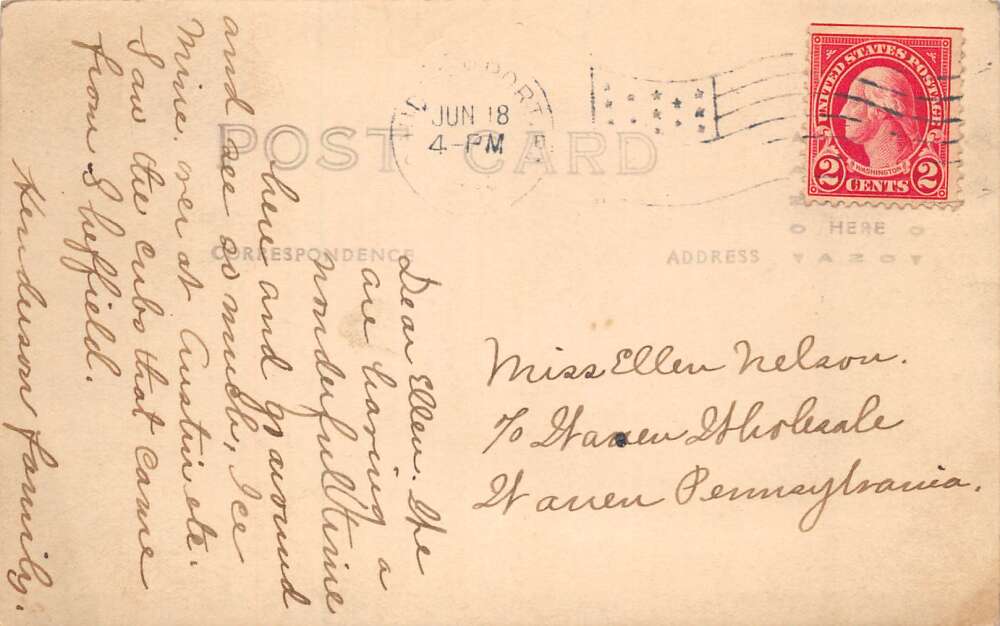 POST CARD
CORRESPONDENCE
ADDRESS
PORT
JUN 18
4-PM
UNITED STATES POSTAGE
WASHINGTON
2 CENTS 2
HERE
Dear Ellen. We
are having a
wonderful time
here and go around
and see so much, Ice
Mine. over at Austin etc.
Saw the cubs that came
from Sheffield.
family.
Miss Ellen Nelson.
℅ Warren Wholesale
Warren Pennsylvania.